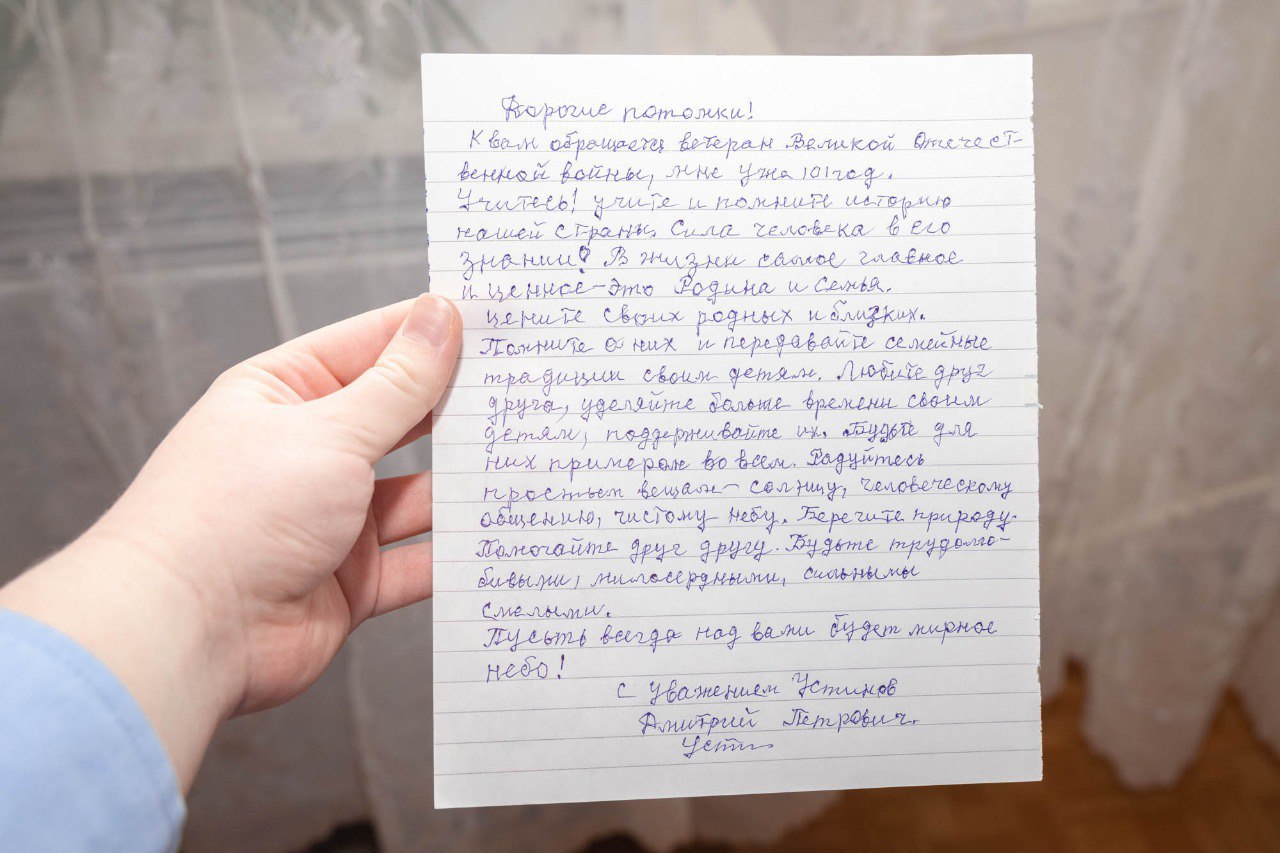 Дорогие потомки!
К вам обращается ветеран Великой Отечест-
венной войны, мне ужа 101 год.
Учитесь! учите и помните историю
нашей страны. Сила человека в его
знании! В жизни самое главное
и ценное - это Родина и Семья.
цените своих родных и близких.
Помните о них и передавайте семейные
традиции своим детям. Любите друг
друга, уделяйте больше времени своим
детям, поддерживайте их. Будьте для
них примером во всем. Радуйтесь
простым вещам - солнцу, человеческому
общению, чистому небу. Берегите природу.
Помогайте друг другу. Будьте трудолю-
бивыми, милосердными, сильными
смелыми.
Пусьть всегда над вами будет мирное
небо!
С уважением Устинов
Дмитрий Петрович.